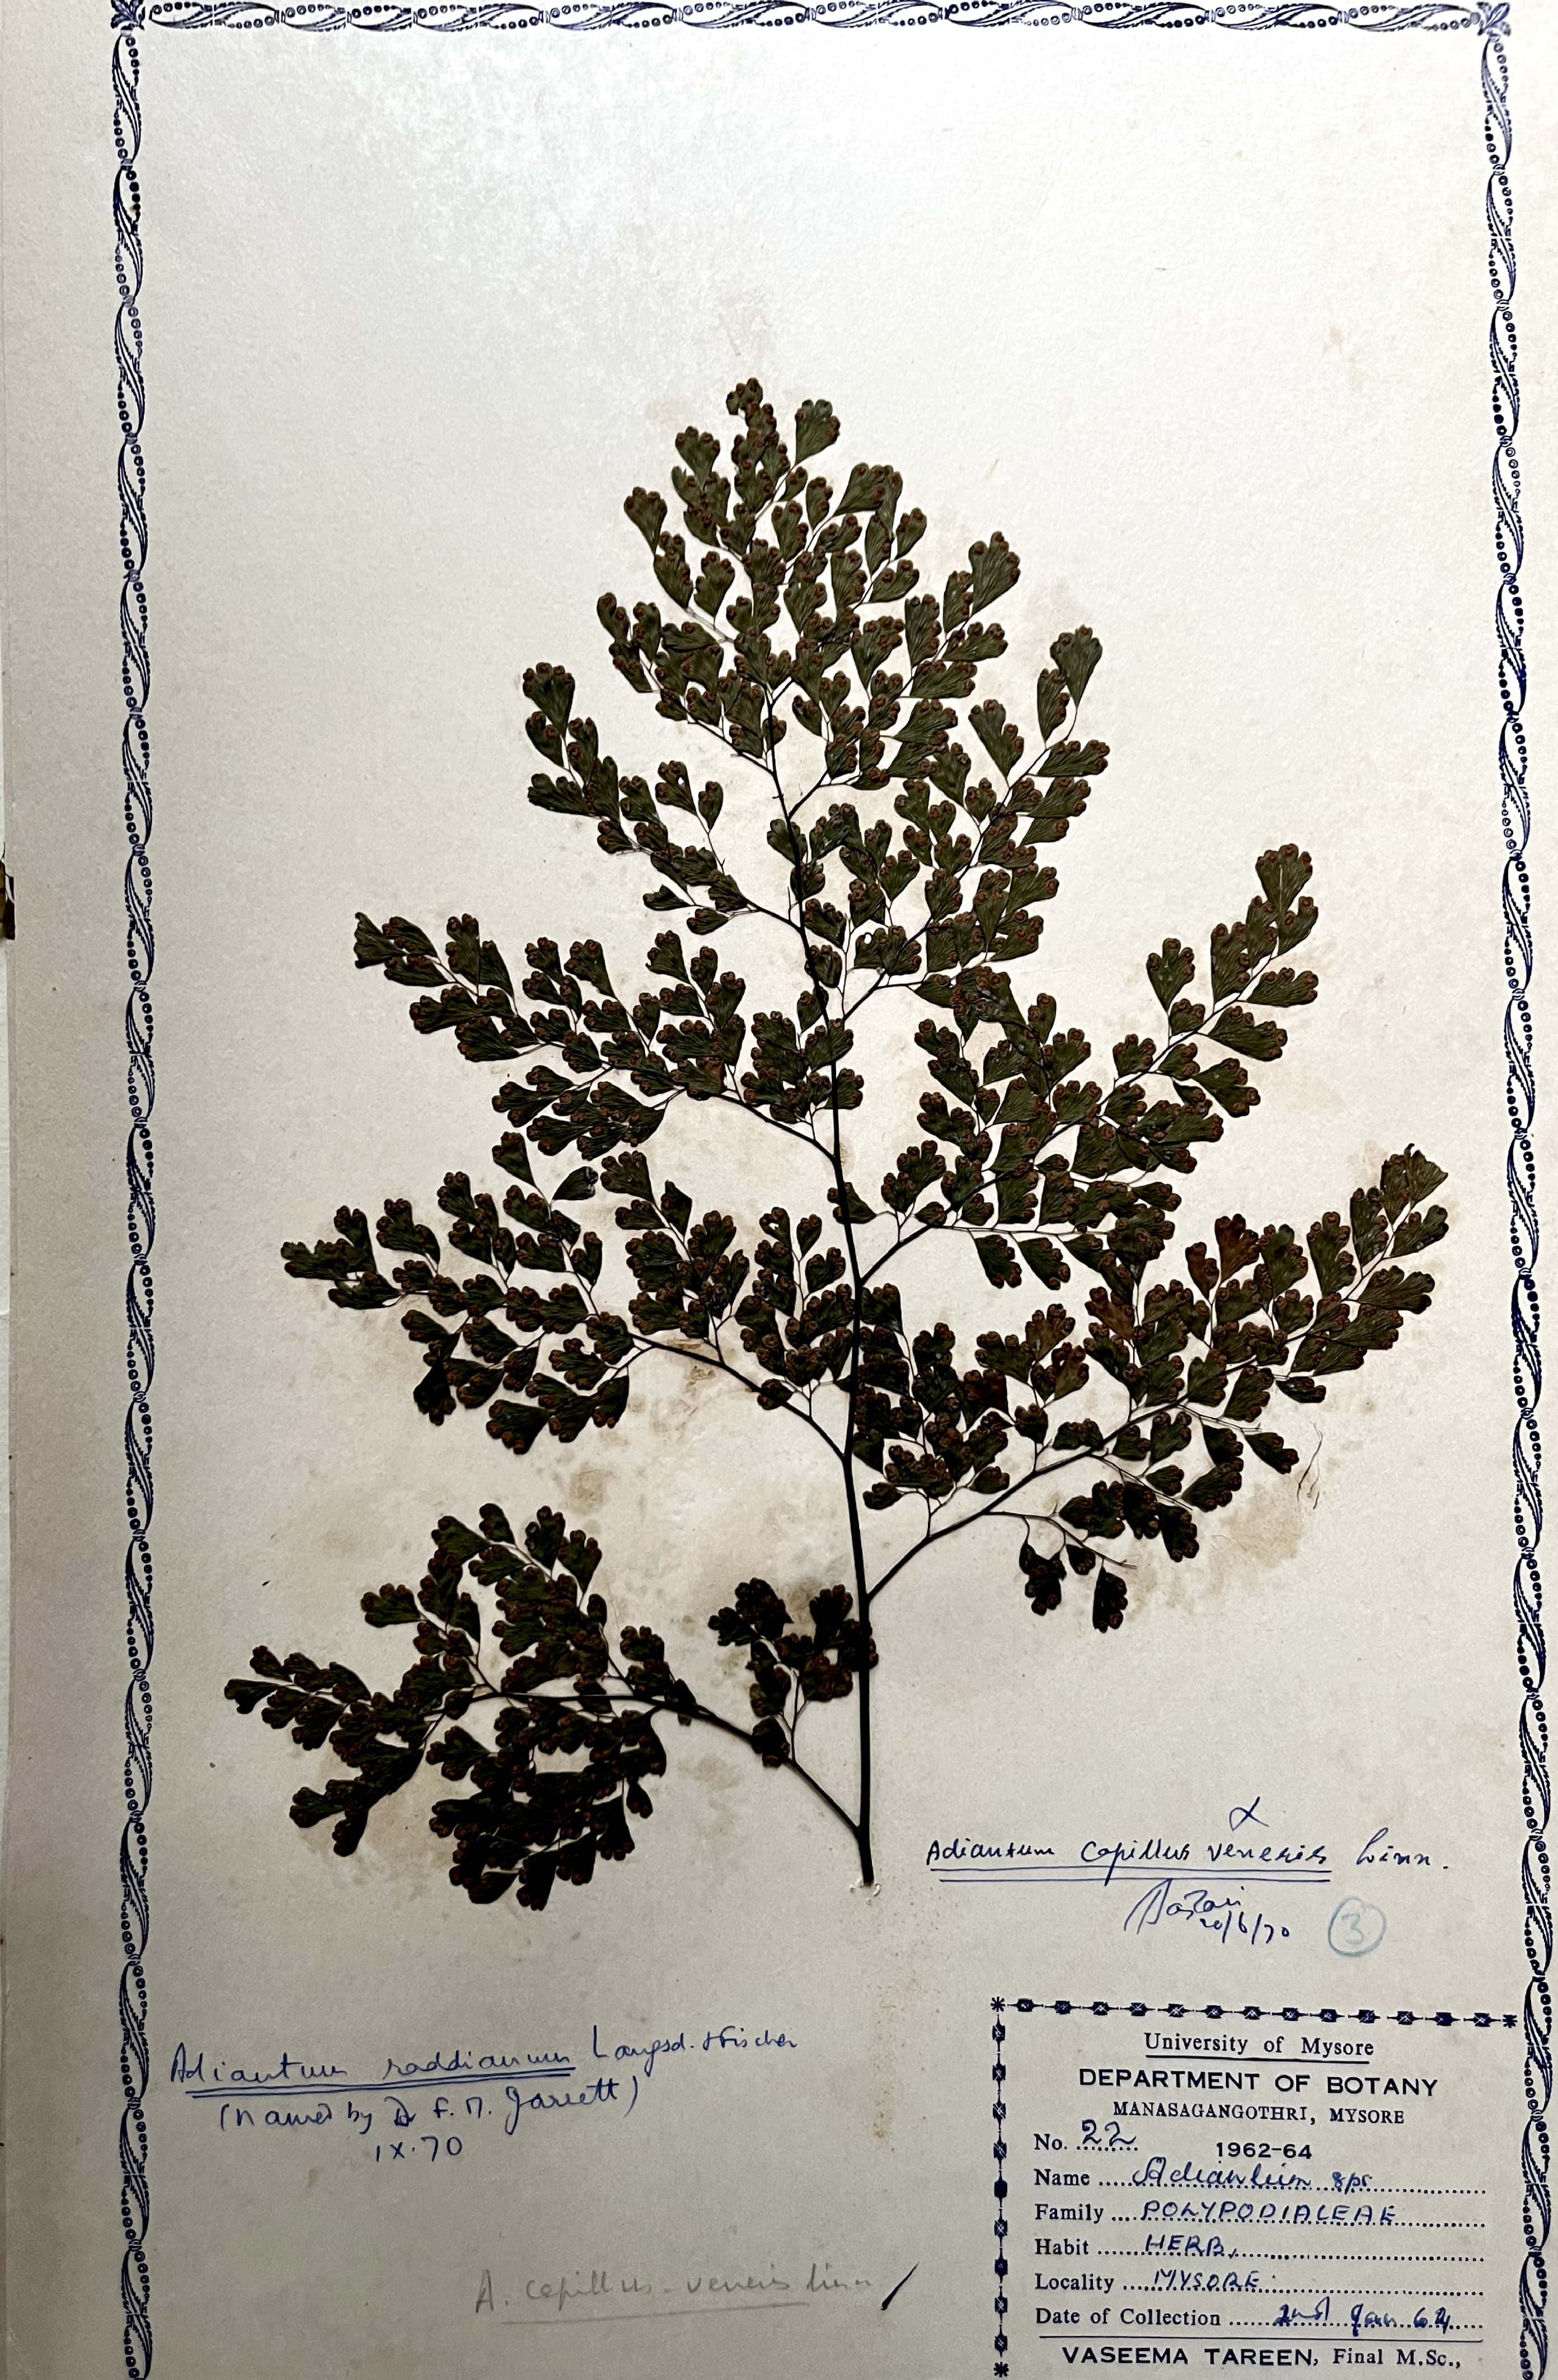 Adiantum capillus veneris Linn.
20/6/70
3
Adiantum raddianum Langsd. & Fischer
(Named by Dr F. M. Jarrett)
IX.70
A. capillus-veneris Linn
University of Mysore
DEPARTMENT OF BOTANY
MANASAGANGOTHRI, MYSORE
No. 22
1962-64
Name Adiantum spc
Family POLYPODIACEAE
Habit HERB.
Locality MYSORE
Date of Collection 2nd Jan 64
VASEEMA TAREEN, Final M.Sc.,